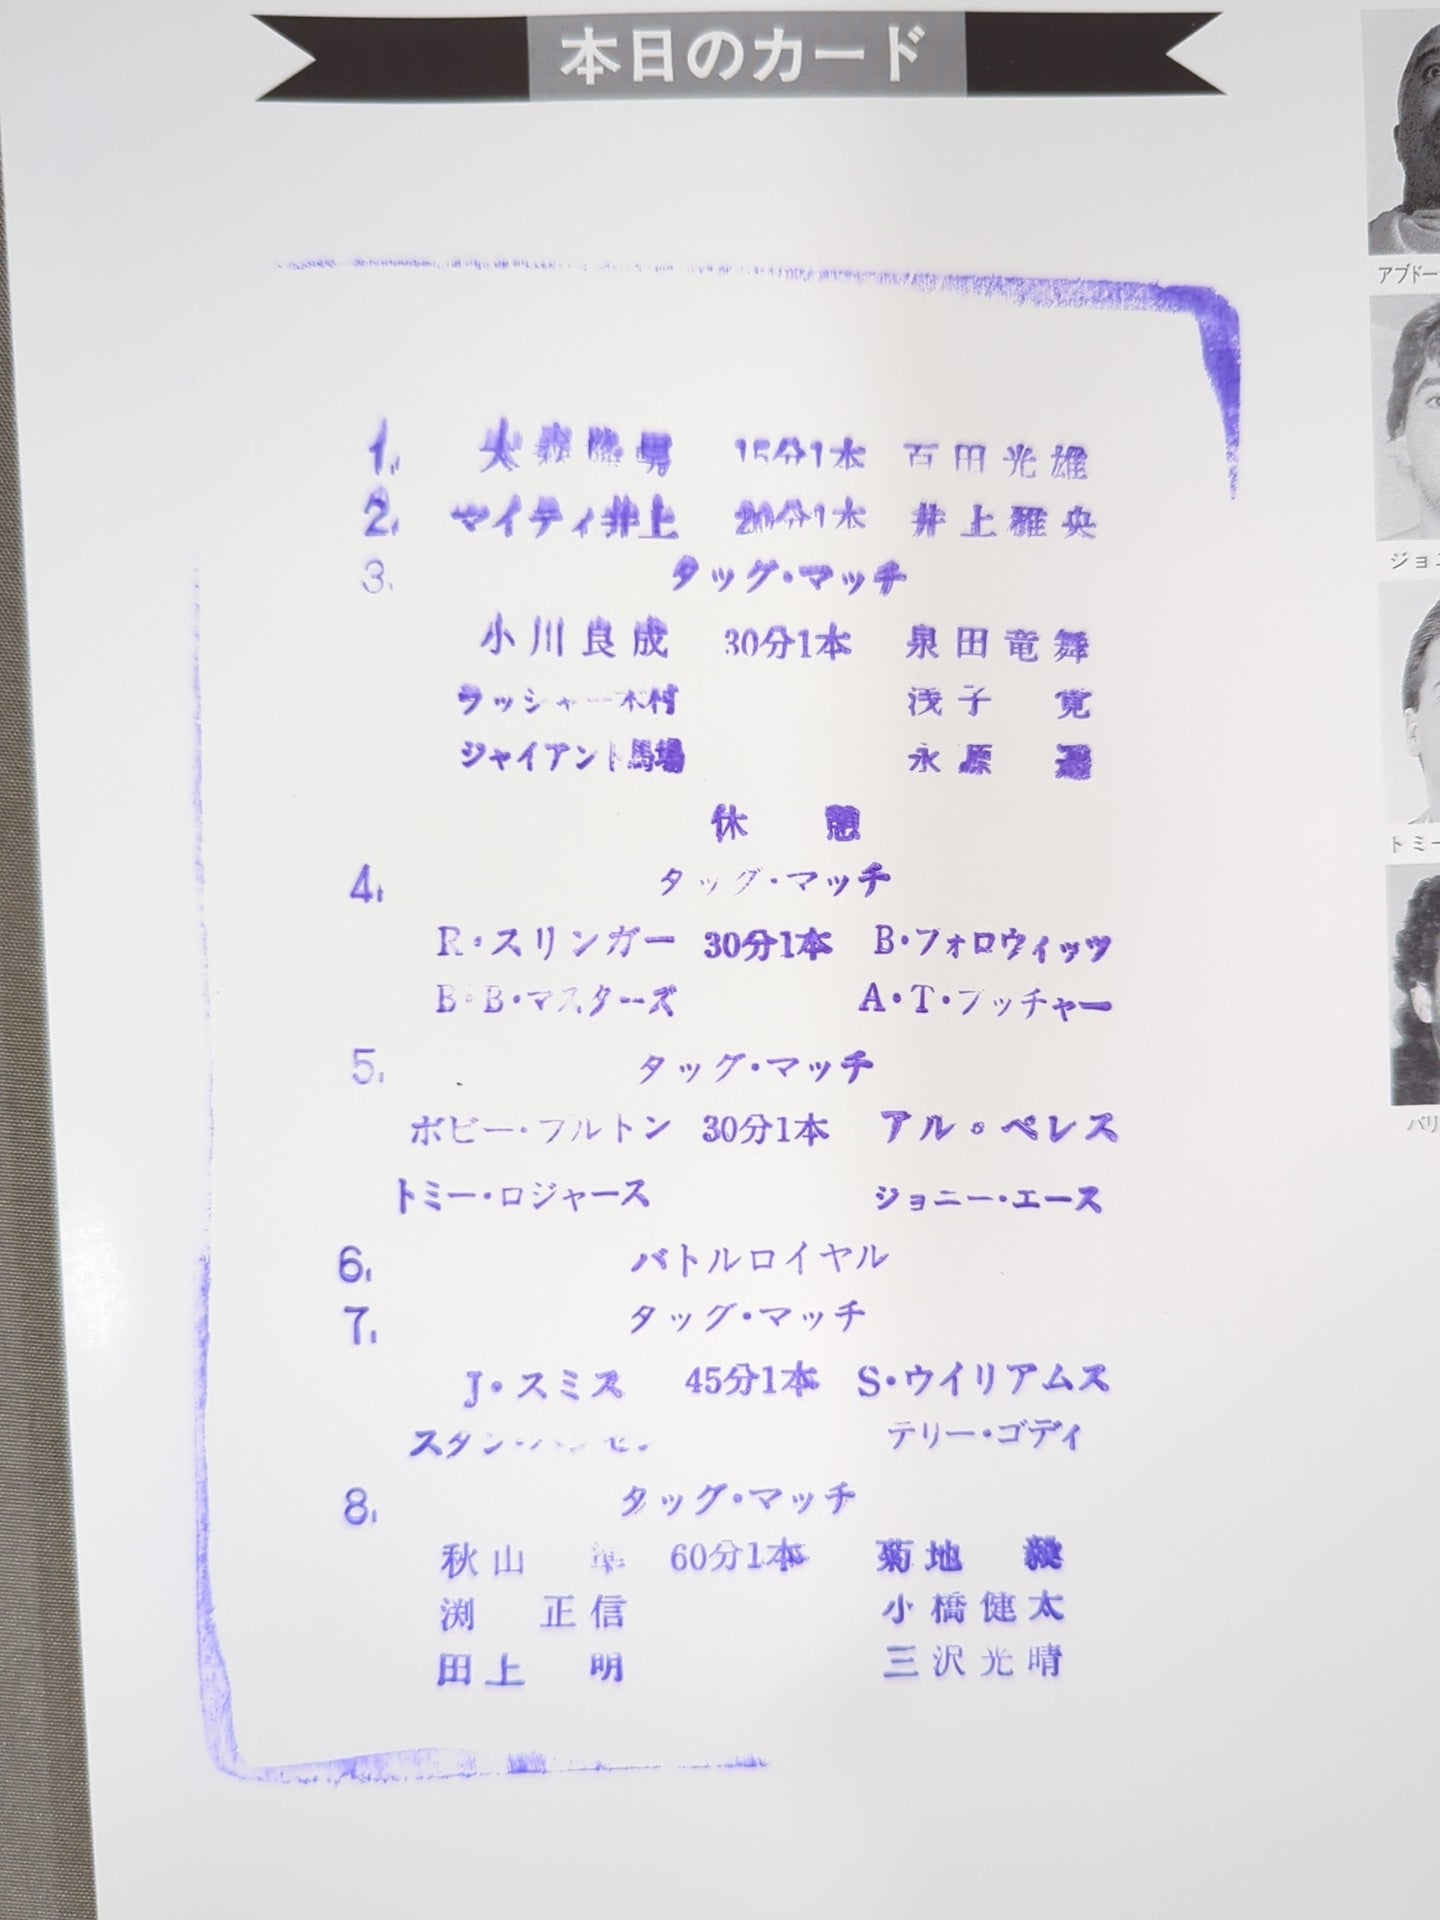 本日のカード
1. 大森隆男 15分1本 百田光雄
2. マイティ井上 20分1本 井上雅央
3. タッグ・マッチ
小川良成 30分1本 泉田竜舞
ラッシャー木村 浅子 覚
ジャイアント馬場 永原 遥
休 憩
4. タッグ・マッチ
R・スリンガー 30分1本 B・フォロウィッツ
B・B・マスターズ A・T・ブッチャー
5. タッグ・マッチ
ボビー・フルトン 30分1本 アル・ペレス
トミー・ロジャース ジョニー・エース
6. バトルロイヤル
7. タッグ・マッチ
J・スミス 45分1本 S・ウイリアムス
スタン・ハンセン テリー・ゴディ
8. タッグ・マッチ
秋山 準 60分1本 菊地 毅
渕 正信 小橋健太
田上 明 三沢光晴
アブドー
ジョニ
トミー
バリ